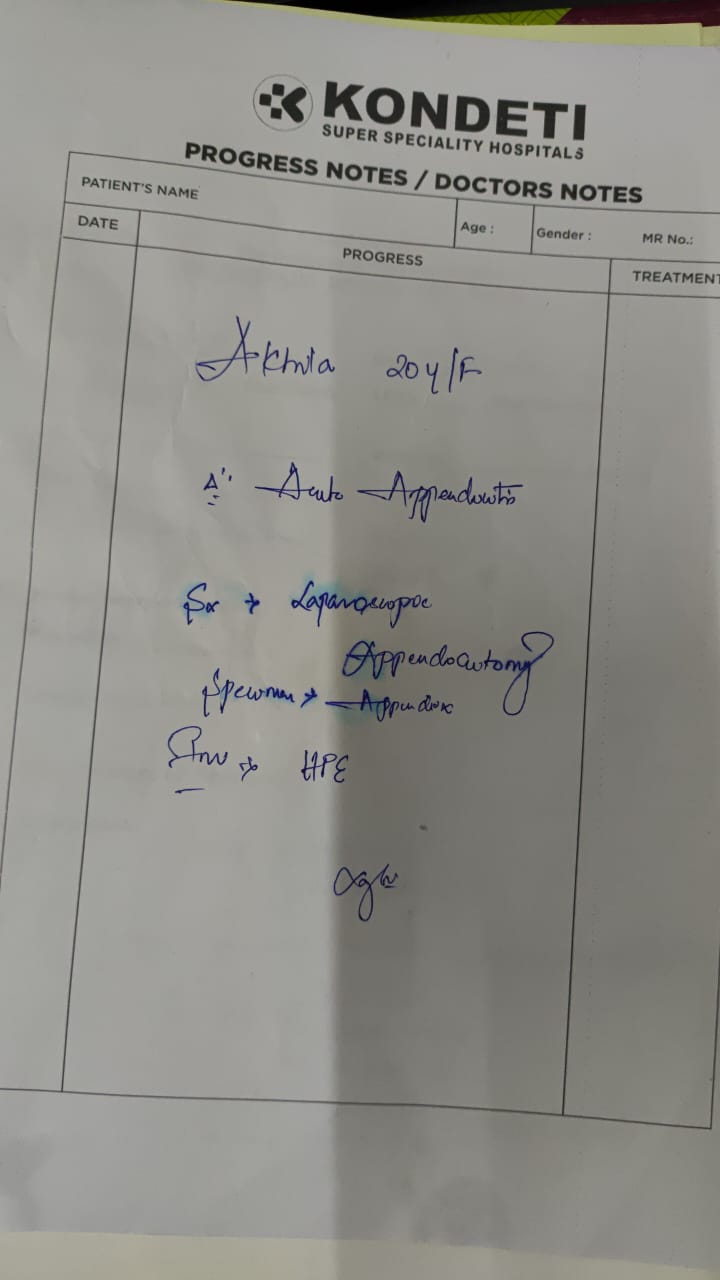 KONDETI
SUPER SPECIALITY HOSPITALS
PROGRESS NOTES / DOCTORS NOTES
PATIENT'S NAME
Age :
Gender :
MR No.:
DATE
PROGRESS
TREATMENT
20y/F
Acute Appendicitis
Sx → Laparoscopic
Appendicectomy
Specimen → Appendix
Inv → HPE